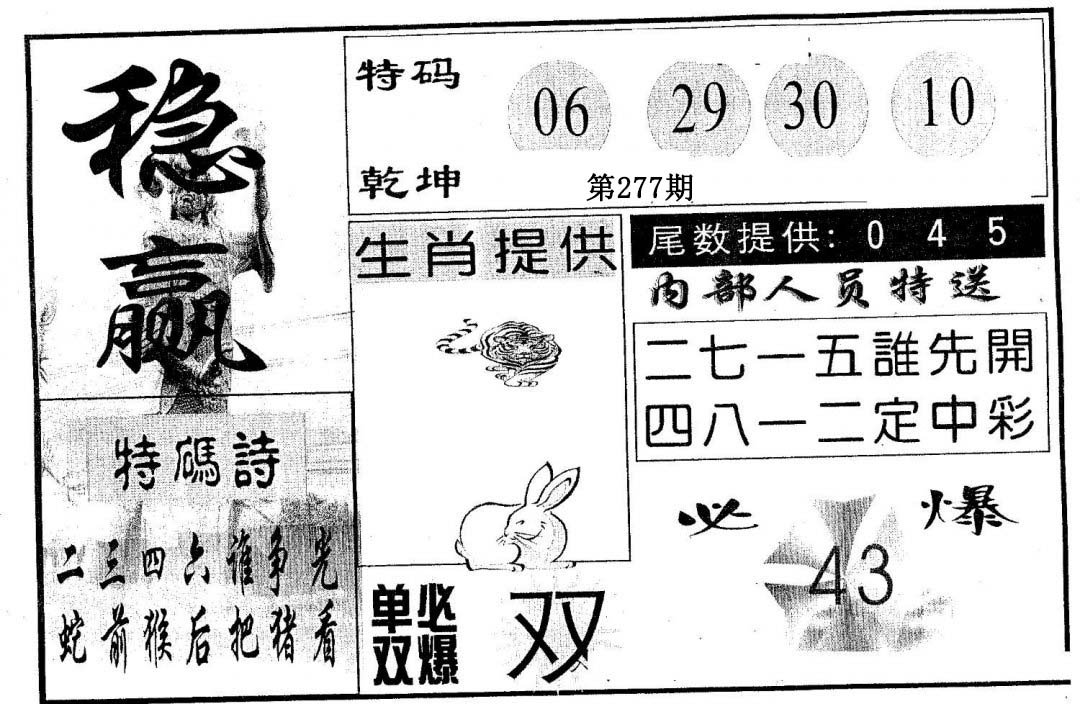 稳赢
特码 06 29 30 10
乾坤 第277期
生肖提供
尾数提供: 0 4 5
内部人员特送
二七一五誰先開
四八一二定中彩
特碼詩
二三四六谁争光
蛇前猴后把猪看
必爆
43
单双必爆 双